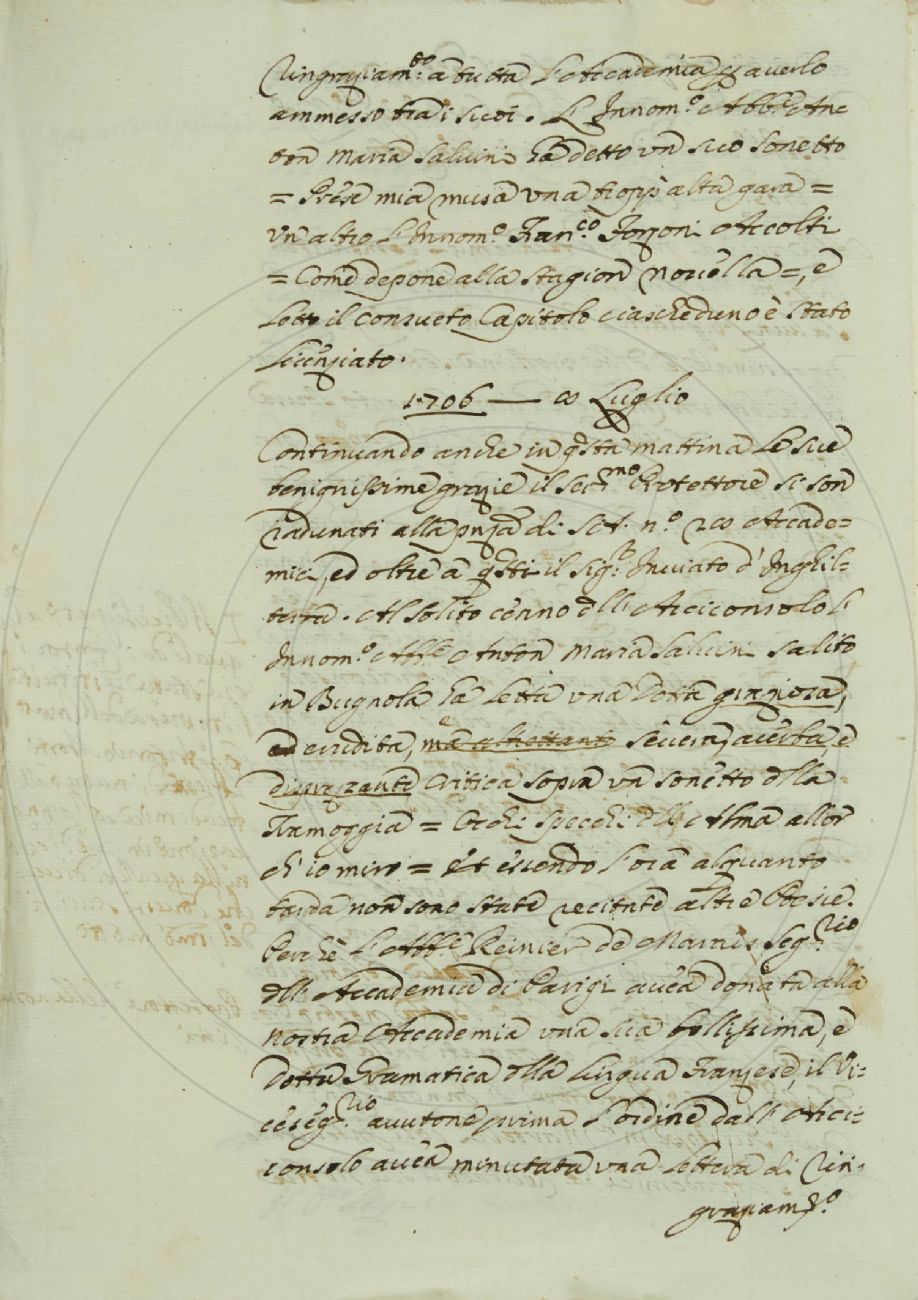 Ringraziam.to à tutta l'Accademia p averlo
ammesso tra i suoi. L'Innom.o Abb.e An=
ton Maria Salvini hà detto un suo Sonetto
= Prese mia musa una tropp' alta gara =
un' altro l'Innom.o Fran.co Forzoni Accolti
= Come depone alla stagion novella =, e
letto il consueto Capitolo ciascheduno è stato
licenziato.
1706 — 8 Luglio
Continuando anche in q.sta mattina le sue
benignissime grazie il Ser.mo Protettore si son
radunati alla pnza di S: A: n.o 28 Accade=
mici, ed oltre à q.sti il Sig.r Inviato d'Inghil=
terra. Al solito cenno dll' Arciconsolo l'
Innom.o Abb.e Anton Maria Salvini salito
in Bugnola hà letta una dotta graziosa,
ed erudita, mà severa, acerba e
Critica sopra un sonetto dlla
Tramoggia = Occhi specchi dll' Alma allor
ch' io miro = Et essendo l'ora alquanto
tarda non sono state recitate altre Poesie.
Perchè l'Abb.e Reinier de Marais Seg.rio
dll' Accademia di Parigi avea donata alla
nostra Accademia una sua bellissima, e
dotta Gramatica dlla lingua Franzese, il Vi=
ceseg.rio avutone prima l'ordine dall' Arci=
consolo avea minutata una lettera di Rin=
graziam.to